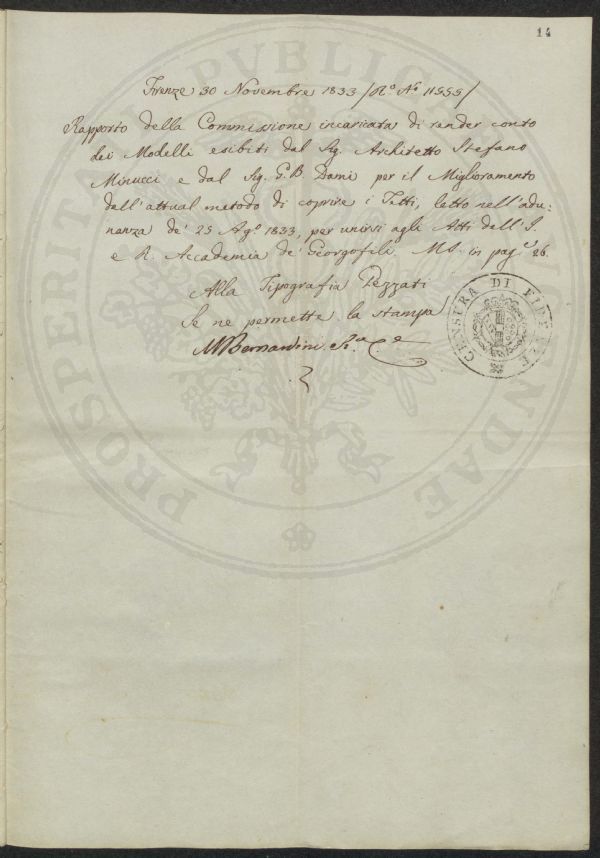 14
Firenze 30 Novembre 1833 / R.º Nº 11555 /
Rapporto della Commissione incaricata di render conto
dei Modelli esibiti dal Sig. Architetto Stefano
Minucci e dal Sig. G. B. Dami per il Miglioramento
dell'attual metodo di coprire i Tetti, letto nell'adu-
nanza de' 25 Agº 1833, per unirsi agli Atti dell'I.
e R. Accademia de' Georgofili MS. in pag.e 26.
Alla Tipografia Pezzati
Se ne permette la stampa
MBernardini
CENSURA DI FIRENZE
PROSPERITATI PVBLICAE AVGENDAE